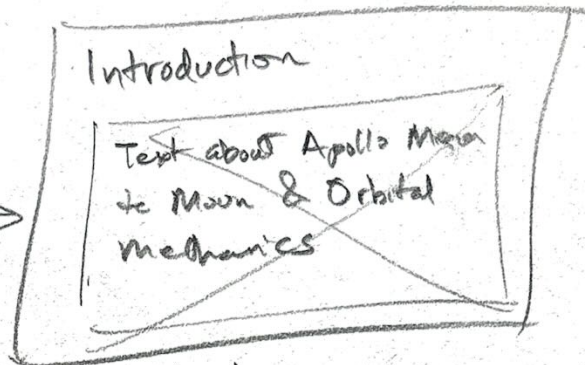 Introduction
Text about Apollo
to Moon & Orbital
mechanics